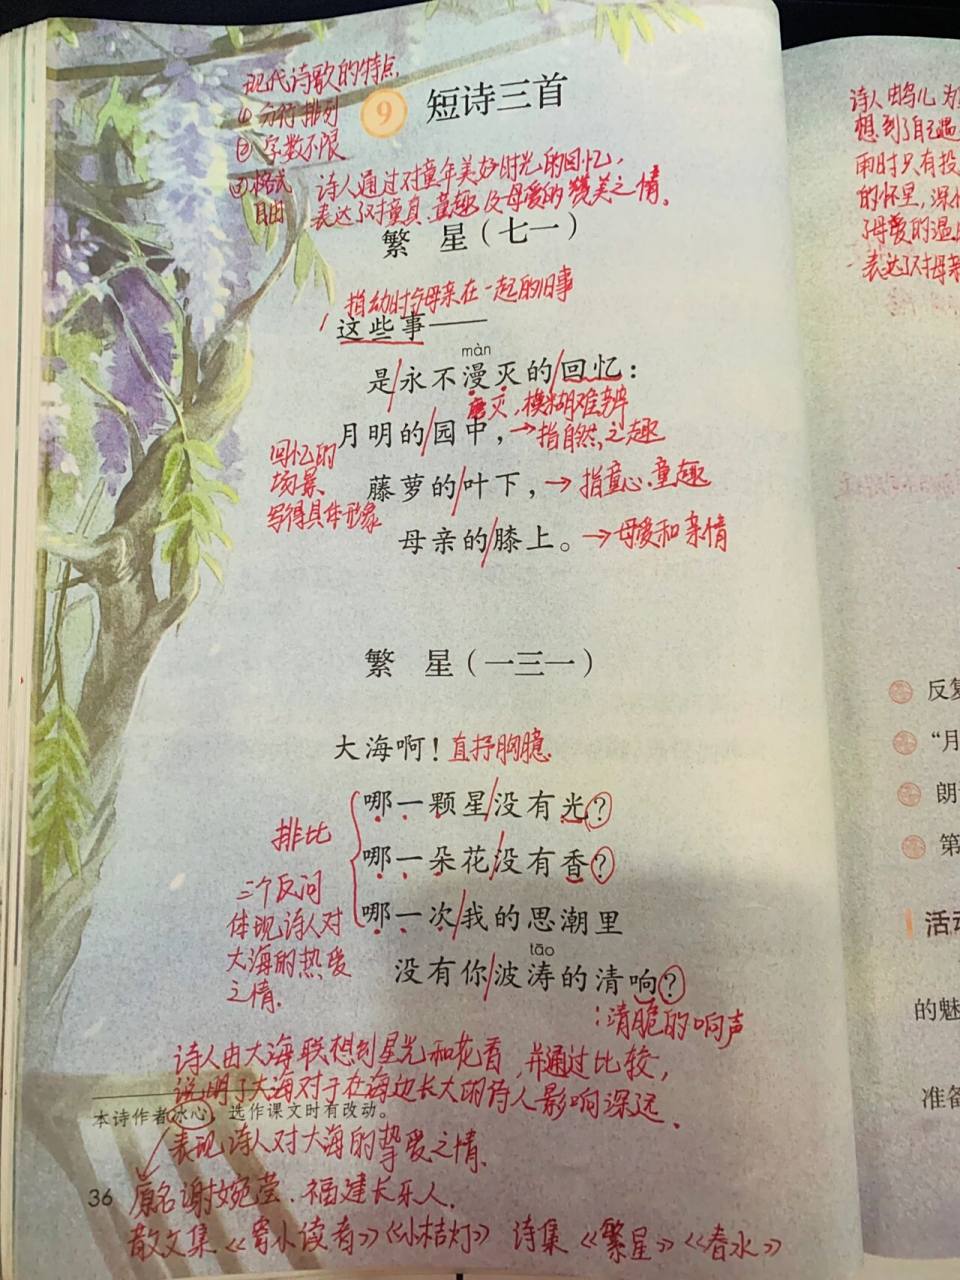 现代诗歌的特点
① 分行排列
② 字数不限
③格式
自由
9 短诗三首
诗人通过对童年美好时光的回忆，
表达了对童真、童趣及母爱的赞美之情。
繁 星（七一）
指幼时与母亲在一起的旧事
这些事——
màn
是/永不漫灭的/回忆：
磨灭，模糊难辨
月明的/园中，→指自然之趣
回忆的
场景
写得具体形象
藤萝的/叶下，→指童心、童趣
母亲的/膝上。→母爱和亲情
繁 星（一三一）
大海啊！直抒胸臆
哪一颗星/没有光？
排比
哪一朵花/没有香？
三个反问
体现诗人对
大海的热爱
之情.
哪一次/我的思潮里
tāo
没有你/波涛的清响？
：清脆的响声
诗人由大海联想到星光和花香，并通过比较，
说明了大海对于在海边长大的诗人影响深远.
本诗作者冰心，选作课文时有改动。
表现诗人对大海的挚爱之情.
36
原名谢婉莹.福建长乐人.
散文集《寄小读者》《小桔灯》 诗集《繁星》《春水》
诗人由鸟儿为
想到了自己遇
雨时只有投
的怀里，深
了母爱的温
表达了对母亲
反复
“月
朗
第
活动
的魅
准备